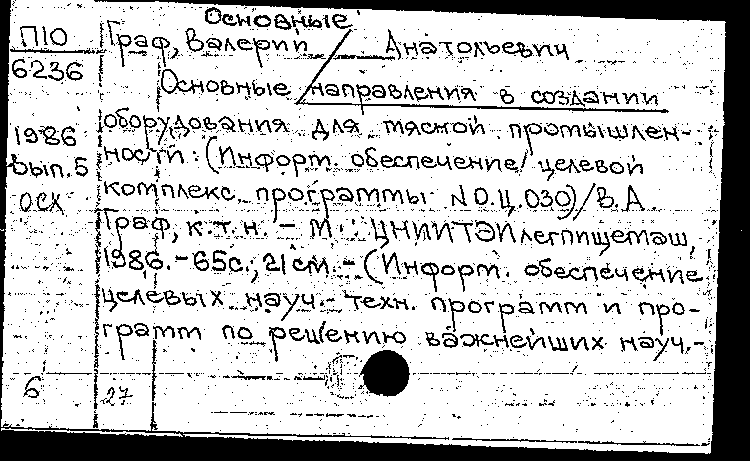 Основные
П10
Граф, Валерий Анатольевич
6236
Основные направления в создании
оборудования для мясной промышлен-
1986
ности: (Информ. обеспечение/целевой
Вып.5
комплекс. программы N0.Ц.030)/В.А.
ОСХ
Граф, к.т.н. - М.: ЦНИИТЭИлегпищемаш,
1986.-65с., 21см.-(Информ. обеспечение
целевых науч.-техн. программ и про-
грамм по решению важнейших науч.-
6
27